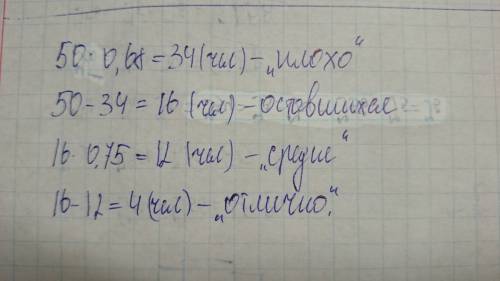 50 · 0,68 = 34 (чел) - „плохо“
50 - 34 = 16 (чел) - оставшихся
16 · 0,75 = 12 (чел) - „средне“
16 - 12 = 4 (чел) - „отлично.“